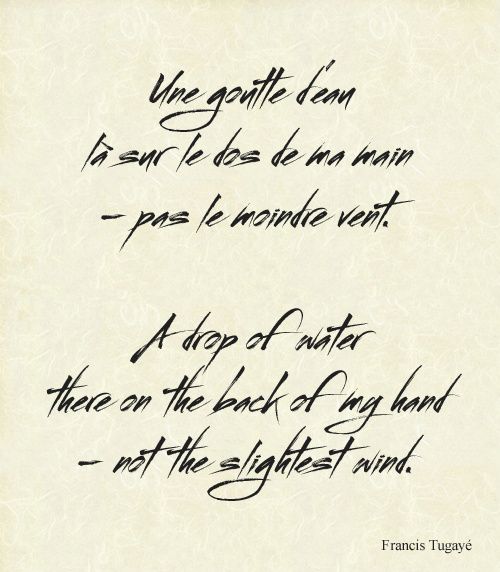 Une goutte d'eau
là sur le dos de ma main
– pas le moindre vent.
A drop of water
there on the back of my hand
– not the slightest wind.
Francis Tugayé